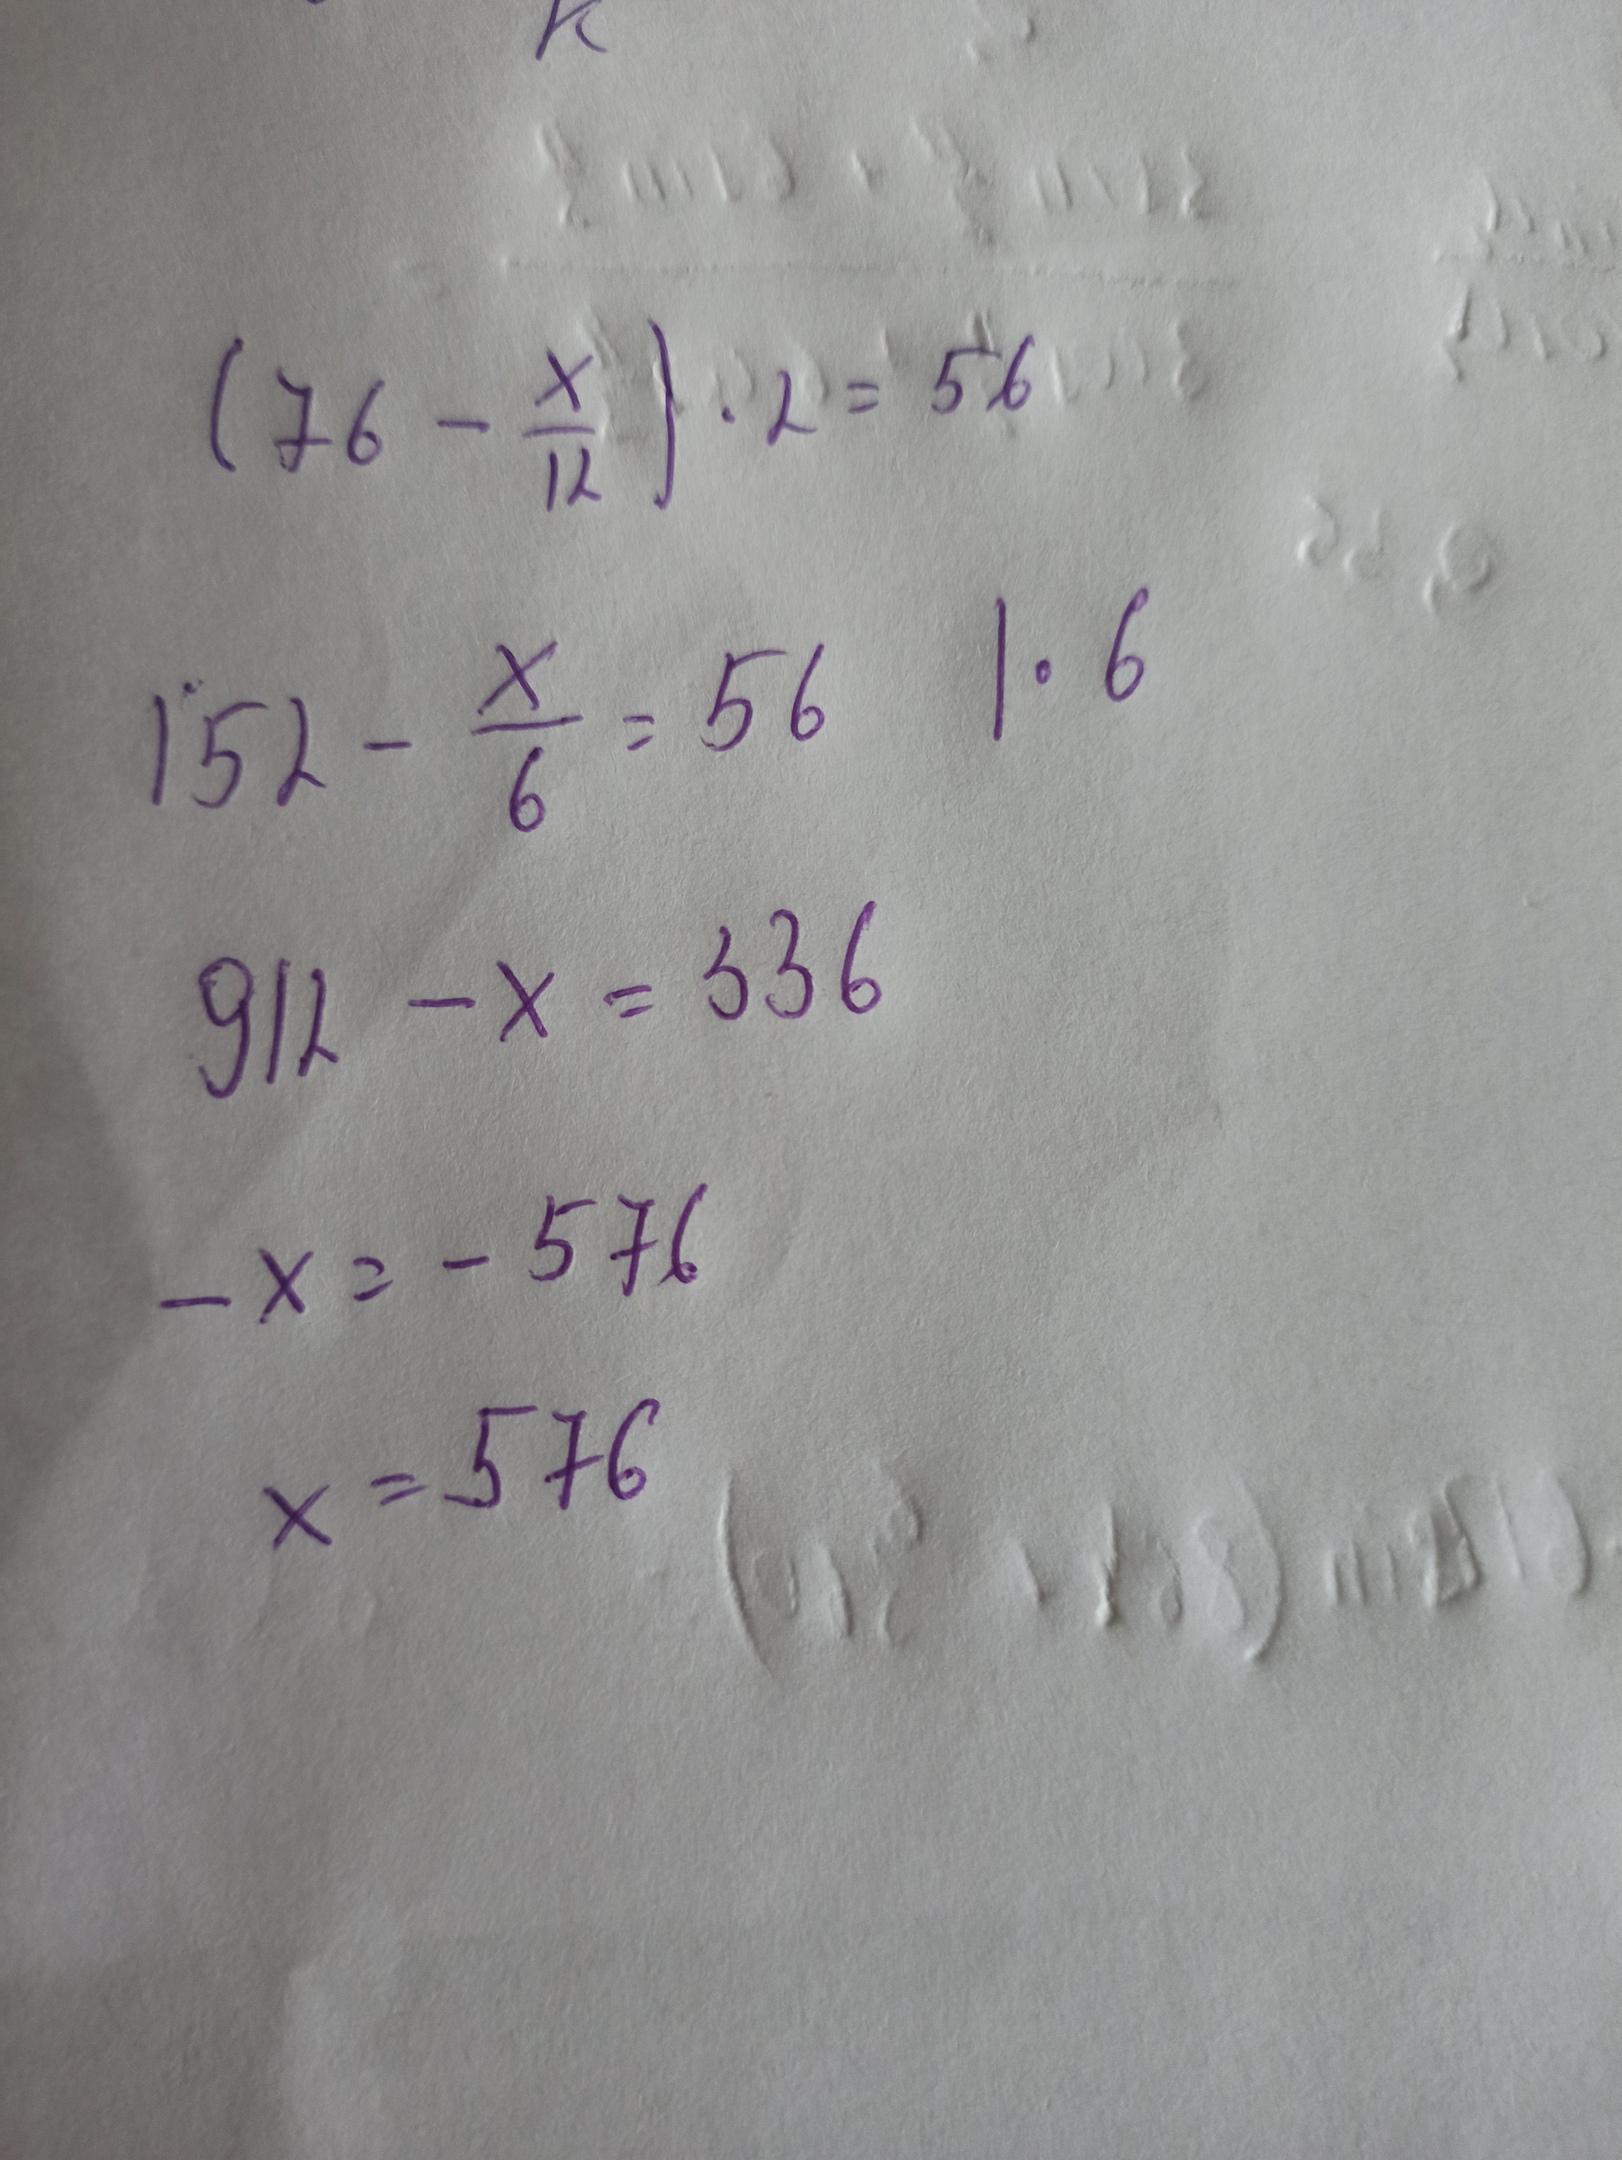 k
(76 - x/12) · 2 = 56
152 - x/6 = 56 | · 6
912 - x = 336
-x = -576
x = 576